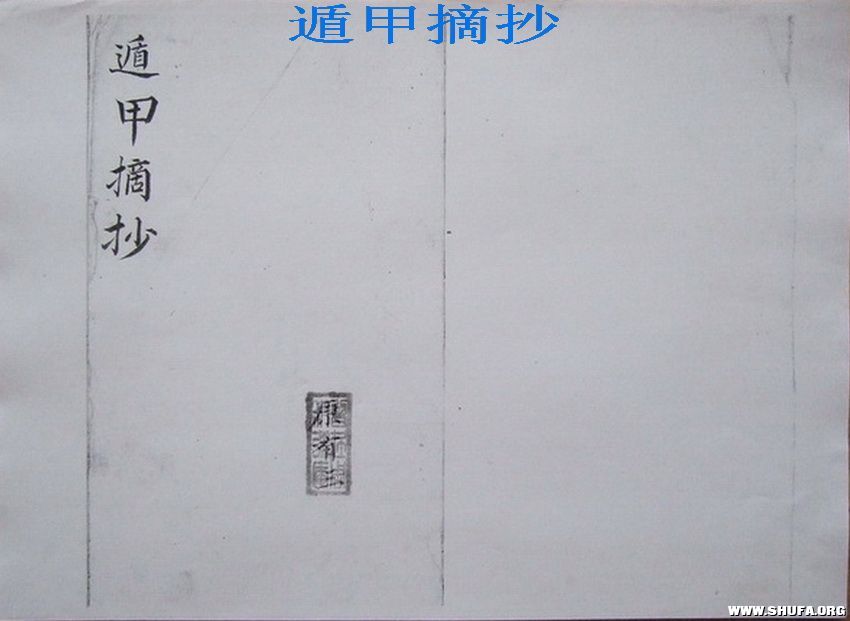 遁甲摘抄
遁甲摘抄
WWW.SHUFA.ORG